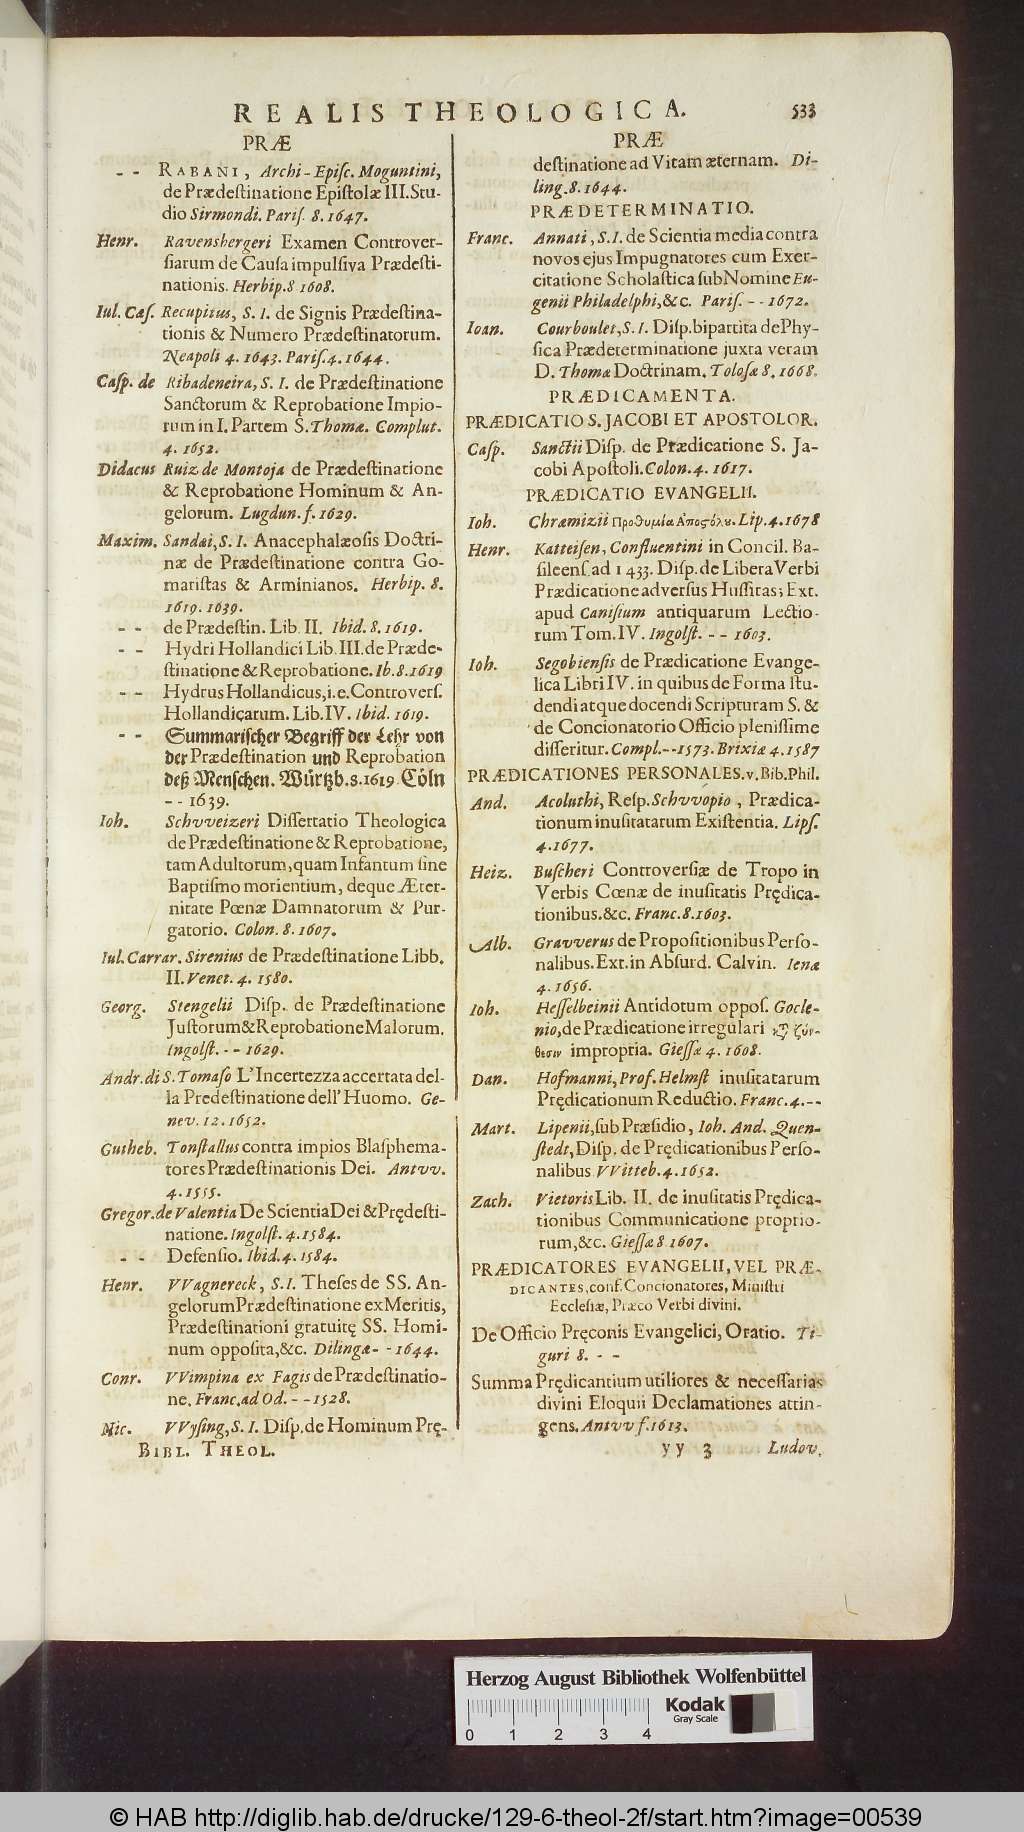 REALIS THEOLOGICA. 533
PRÆ
- - RABANI, Archi-Epiſc. Moguntini,
de Prædeſtinatione Epiſtolæ III. Stu-
dio Sirmondi. Pariſ. 8. 1647.
Henr. Ravensbergeri Examen Controver-
ſiarum de Cauſa impulſiva Prædeſti-
nationis. Herbip. 8 1608.
Iul. Cæſ. Recupitus, S. I. de Signis Prædeſtina-
tionis & Numero Prædeſtinatorum.
Neapoli 4. 1643. Pariſ. 4. 1644.
Caſp. de Ribadeneira, S. I. de Prædeſtinatione
Sanctorum & Reprobatione Impio-
rum in I. Partem S. Thomæ. Complut.
4. 1652.
Didacus Ruiz de Montoja de Prædeſtinatione
& Reprobatione Hominum & An-
gelorum. Lugdun. f. 1629.
Maxim. Sandæi, S. I. Anacephalæoſis Doctri-
næ de Prædeſtinatione contra Go-
mariſtas & Arminianos. Herbip. 8.
1619. 1639.
- - de Prædeſtin. Lib. II. Ibid. 8. 1619.
- - Hydri Hollandici Lib. III. de Præde-
ſtinatione & Reprobatione. Ib. 8. 1619
- - Hydrus Hollandicus, i.e. Controverſ.
Hollandicarum. Lib. IV. Ibid. 1619.
- - Summariſcher Begriff der Lehr von
der Prædeſtination und Reprobation
deß Menſchen. Würtzb. 8. 1619 Cöln
- - 1639.
Ioh. Schvveizeri Diſſertatio Theologica
de Prædeſtinatione & Reprobatione,
tam Adultorum, quam Infantum ſine
Baptiſmo morientium, deque Æter-
nitate Pœnæ Damnatorum & Pur-
gatorio. Colon. 8. 1607.
Iul. Carrar. Sirenius de Prædeſtinatione Libb.
II. Venet. 4. 1580.
Georg. Stengelii Diſp. de Prædeſtinatione
Juſtorum & Reprobatione Malorum.
Ingolſt. - - 1629.
Andr. di S. Tomaſo L'Incertezza accertata del-
la Predeſtinatione dell' Huomo. Ge-
nev. 12. 1652.
Gutheb. Tonſtallus contra impios Blaſphema-
tores Prædeſtinationis Dei. Antvv.
4. 1555.
Gregor. de Valentia De Scientia Dei & Prędeſti-
natione. Ingolſt. 4. 1584.
- - Defenſio. Ibid. 4. 1584.
Henr. VVagnereck, S. I. Theſes de SS. An-
gelorum Prædeſtinatione ex Meritis,
Prædeſtinationi gratuitę SS. Homi-
num oppoſita, &c. Dilingæ - - 1644.
Conr. VVimpina ex Fagis de Prædeſtinatio-
ne. Franc. ad Od. - - 1528.
Nic. VVyſing, S. I. Diſp. de Hominum Prę-
BIBL. THEOL.
PRÆ
deſtinatione ad Vitam æternam. Di-
ling. 8. 1644.
PRÆDETERMINATIO.
Franc. Annati, S. I. de Scientia media contra
novos ejus Impugnatores cum Exer-
citatione Scholaſtica ſub Nomine Eu-
genii Philadelphi, &c. Pariſ. - - 1672.
Ioan. Courboulet, S. I. Diſp. bipartita de Phy-
ſica Prædeterminatione juxta veram
D. Thomæ Doctrinam. Toloſæ 8. 1668.
PRÆDICAMENTA.
PRÆDICATIO S. JACOBI ET APOSTOLOR.
Caſp. Sanctii Diſp. de Prædicatione S. Ja-
cobi Apoſtoli. Colon. 4. 1617.
PRÆDICATIO EVANGELII.
Ioh. Chræmizii Προθυμία Ἀποςόλȣ. Lip. 4. 1678
Henr. Katteiſen, Confluentini in Concil. Ba-
ſileenſ. ad 1433. Diſp. de Libera Verbi
Prædicatione adverſus Huſſitas; Ext.
apud Caniſium antiquarum Lectio-
rum Tom. IV. Ingolſt. - - 1603.
Ioh. Segobienſis de Prædicatione Evange-
lica Libri IV. in quibus de Forma ſtu-
dendi atque docendi Scripturam S. &
de Concionatorio Officio pleniſſime
diſſeritur. Compl. - - 1573. Brixiæ 4. 1587
PRÆDICATIONES PERSONALES. v. Bib. Phil.
And. Acoluthi, Reſp. Schvvopio, Prædica-
tionum inuſitatarum Exiſtentia. Lipſ.
4. 1677.
Heiz. Buſcheri Controverſiæ de Tropo in
Verbis Cœnæ de inuſitatis Prędica-
tionibus. &c. Franc. 8. 1603.
Alb. Gravverus de Propoſitionibus Perſo-
nalibus. Ext. in Abſurd. Calvin. Ienæ
4. 1656.
Ioh. Heſſelbeinii Antidotum oppoſ. Gocle-
nio, de Prædicatione irregulari ϗ ζύν-
θεσιν impropria. Gieſſæ 4. 1608.
Dan. Hofmanni, Prof. Helmſt inuſitatarum
Prędicationum Reductio. Franc. 4. - -
Mart. Lipenii, ſub Præſidio, Ioh. And. Quen-
ſtedt, Diſp. de Prędicationibus Perſo-
nalibus VVitteb. 4. 1652.
Zach. Vietoris Lib. II. de inuſitatis Prędica-
tionibus Communicatione proprio-
rum, &c. Gieſſæ 8 1607.
PRÆDICATORES EVANGELII, VEL PRÆ-
DICANTES, conf. Concionatores, Miniſtri
Eccleſiæ, Præco Verbi divini.
De Officio Pręconis Evangelici, Oratio. Ti-
guri 8. - -
Summa Prędicantium utiliores & neceſſarias
divini Eloquii Declamationes attin-
gens. Antvv f. 1613.
yy 3 Ludov.
Herzog August Bibliothek Wolfenbüttel
0 1 2 3 4
Kodak
Gray Scale
© HAB http://diglib.hab.de/drucke/129-6-theol-2f/start.htm?image=00539